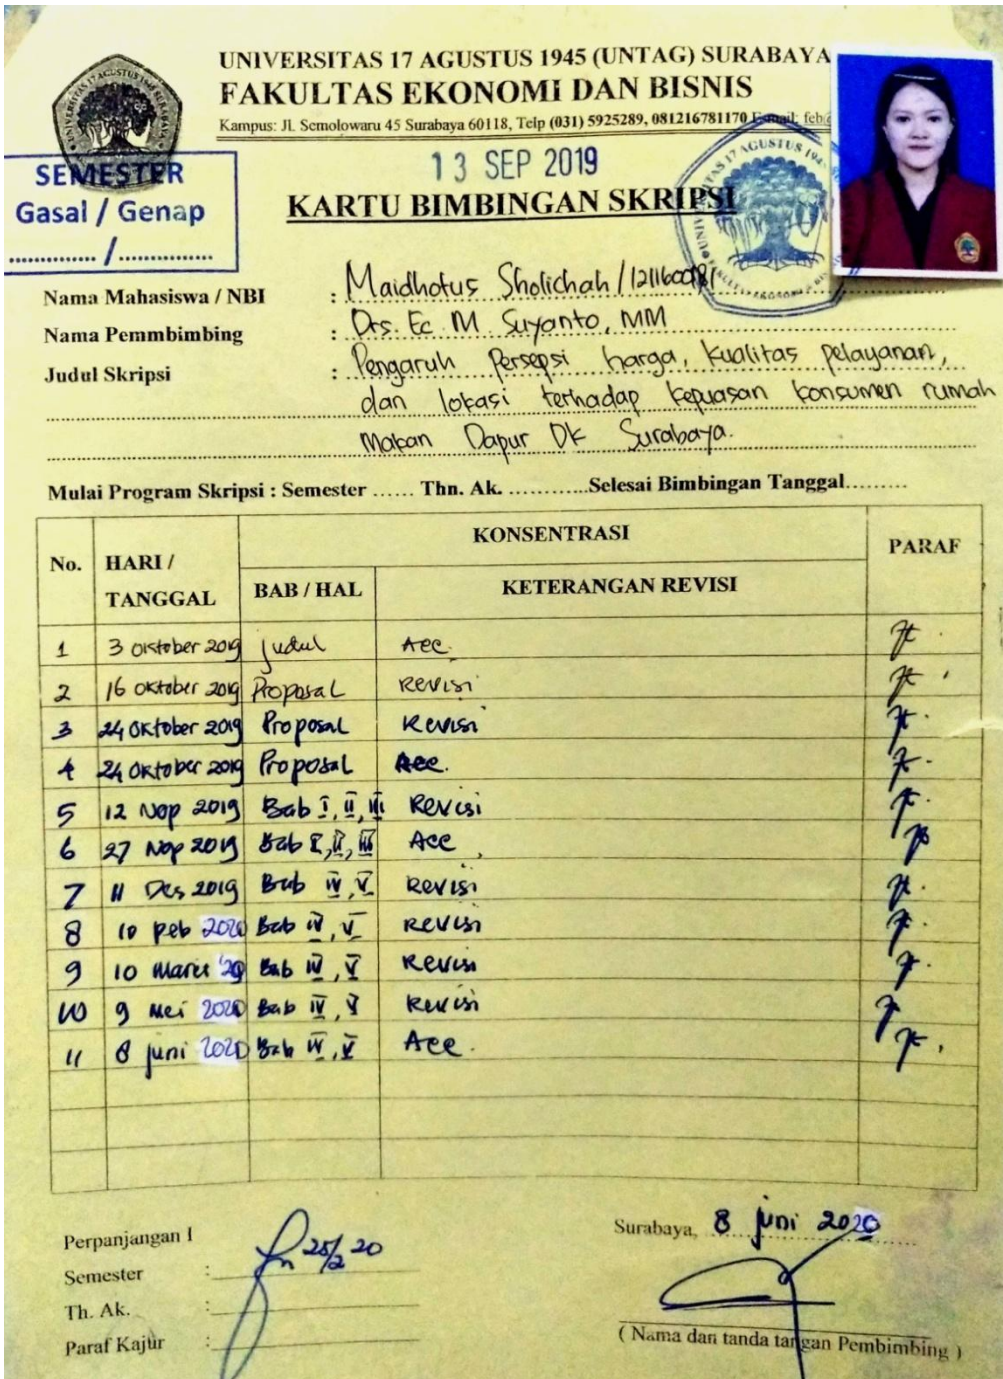 UNIVERSITAS 17 AGUSTUS 1945 (UNTAG) SURABAYA
FAKULTAS EKONOMI DAN BISNIS
Kampus: Jl. Semolowaru 45 Surabaya 60118, Telp (031) 5925289, 081216781170 E-mail: feb@
13 SEP 2019
SEMESTER
Gasal / Genap
............. / ...............
KARTU BIMBINGAN SKRIPSI
Nama Mahasiswa / NBI : Maidhotus Sholichah /
Nama Pemmbimbing : Drs. Ec. M. Suyanto, MM
Judul Skripsi : Pengaruh Persepsi harga, kualitas pelayanan,
dan lokasi terhadap kepuasan konsumen rumah
makan Dapur Dk Surabaya.
Mulai Program Skripsi : Semester ...... Thn. Ak. ............Selesai Bimbingan Tanggal.........
No. HARI / TANGGAL KONSENTRASI PARAF
BAB / HAL KETERANGAN REVISI
1 3 Oktober 2019 judul Acc.
2 16 Oktober 2019 Proposal Revisi
3 24 Oktober 2019 Proposal Revisi
4 24 Oktober 2019 Proposal Acc.
5 12 Nop 2019 Bab I, II, III Revisi
6 27 Nop 2019 Bab I, II, III Acc
7 11 Des 2019 Bab IV, V Revisi
8 10 peb 2020 Bab IV, V Revisi
9 10 Maret '20 Bab IV, V Revisi
10 9 Mei 2020 Bab IV, V Revisi
11 8 juni 2020 Bab IV, V Acc.
Perpanjangan I
Semester :
Th. Ak. :
Paraf Kajur :
Surabaya, 8 juni 2020
( Nama dan tanda tangan Pembimbing )